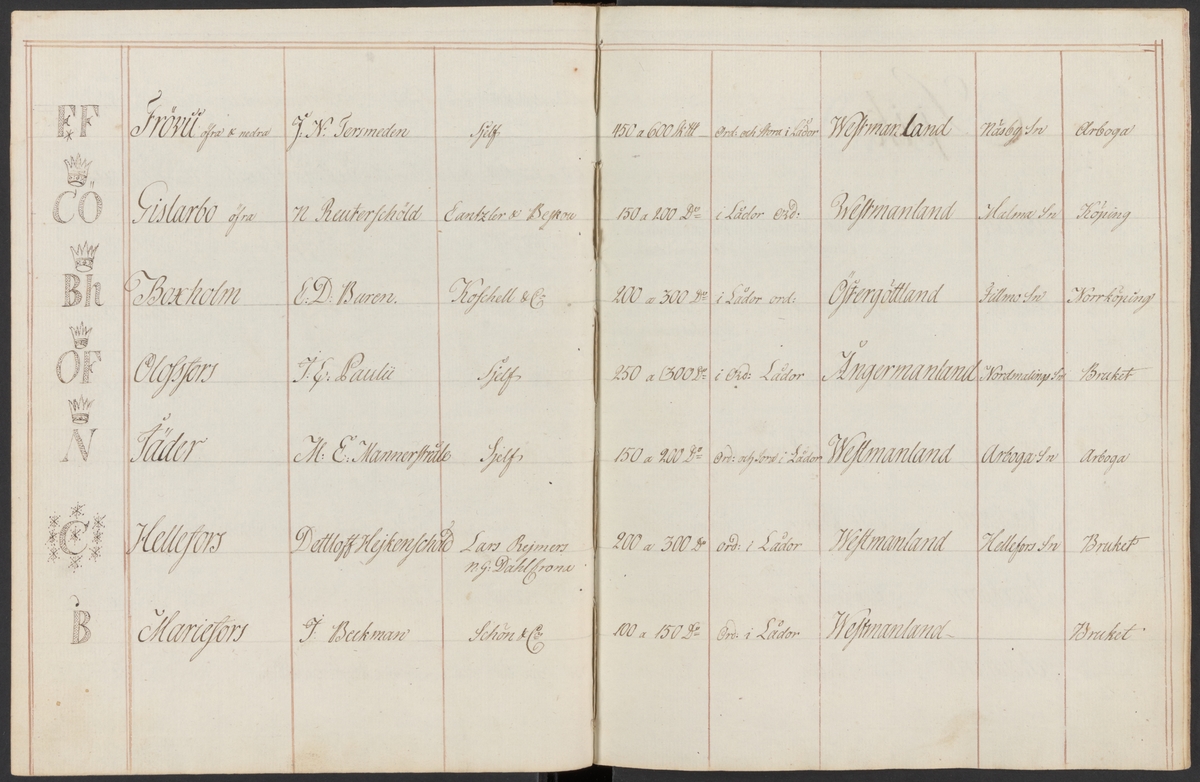 EF Frövii öfra & nedra J. N. Tersmeden Sjelf 450 a 600 sk℔ Ord: och Stora i Lådor Westmanland Näsby Sn Arboga
CÖ Gislarbo öfra N Reuterschöld Cantzler & Beskow 150 a 200 Do i Lådor Ord: Westmanland Malma Sn Köping
Bh Boxholm E. D. Buren. Koschell & Co 200 a 300 Do i Lådor ord: Östergöttland Norrköping
OF Olofsfors J. E. Pauli Sjelf 250 a 1300 Do i Ord: Lådor Ångermanland Nordmalings Sn Bruket
N Jäder M: E: Mannerstråle Sjelf 150 a 200 Do Ord: och Stora i Lådor Westmanland Arboga Sn Arboga
C Hellefors Dettloff Hejkenschöld Lars Rejmers 200 a 300 Do ord: i Lådor Westmanland Hellefors Sn Bruket
N G: Dahlström
B Mariefors J. Beckman Schön & Co 100 a 150 Do Ord: i Lådor Westmanland Bruket